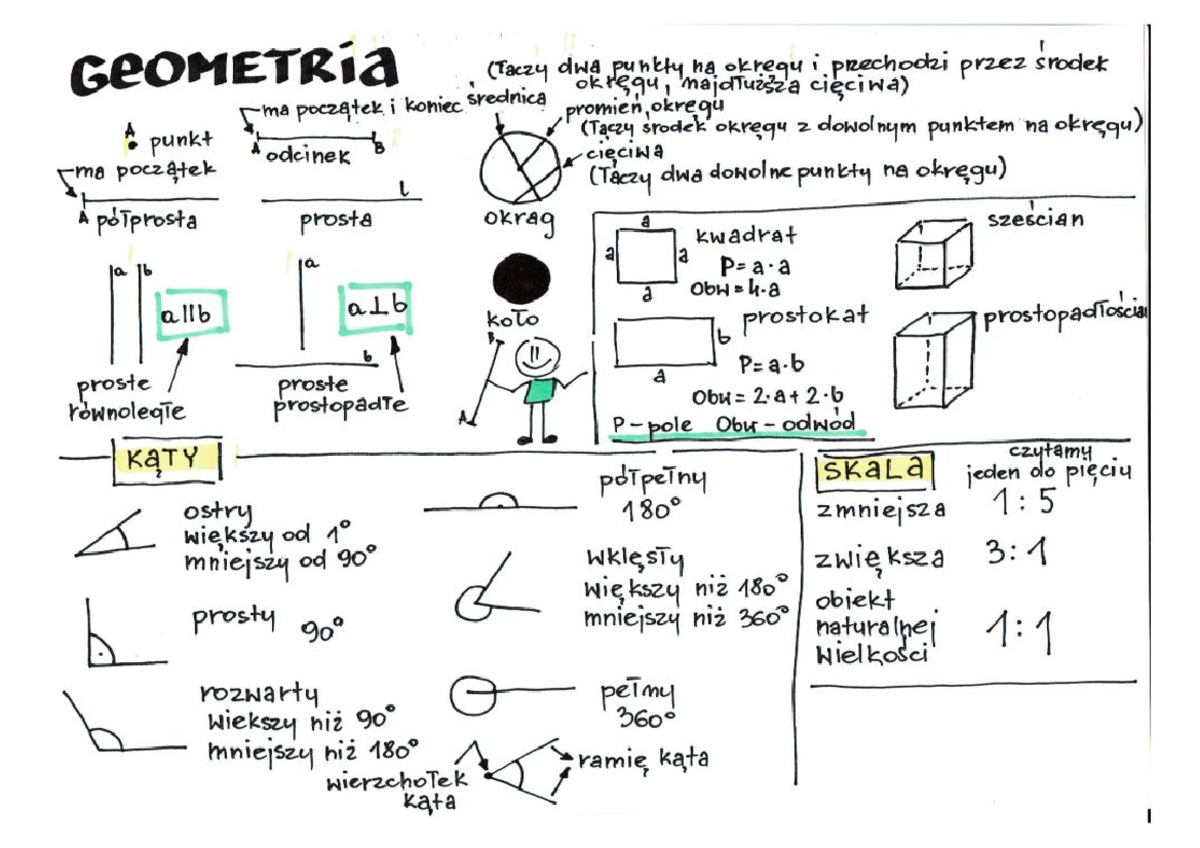 GEOMETRIA
(Łączy dwa punkty na okręgu i przechodzi przez środek
okręgu, najdłuższa cięciwa)
ma początek i koniec
średnica
promień okręgu
(Łączy środek okręgu z dowolnym punktem na okręgu)
cięciwa
(Łączy dwa dowolne punkty na okręgu)
A
punkt
A B
odcinek
ma początek
A półprosta
l
prosta
okrąg
a b
a||b
proste
równoległe
a
a⊥b
b
proste
prostopadłe
koło
B
A
a
a a
a
kwadrat
P=a·a
Obw=4·a
sześcian
prostokąt
b
a
P=a·b
Obw=2·a+2·b
prostopadłościan
P-pole Obw-odwód
KĄTY
ostry
większy od 1°
mniejszy od 90°
prosty
90°
rozwarty
wiekszy niż 90°
mniejszy niż 180°
półpełny
180°
wklęsły
większy niż 180°
mniejszy niż 360°
pełny
360°
wierzchołek
kąta
ramię kąta
SKALA
czytamy
jeden do pięciu
zmniejsza 1:5
zwiększa 3:1
obiekt
naturalnej 1:1
wielkości